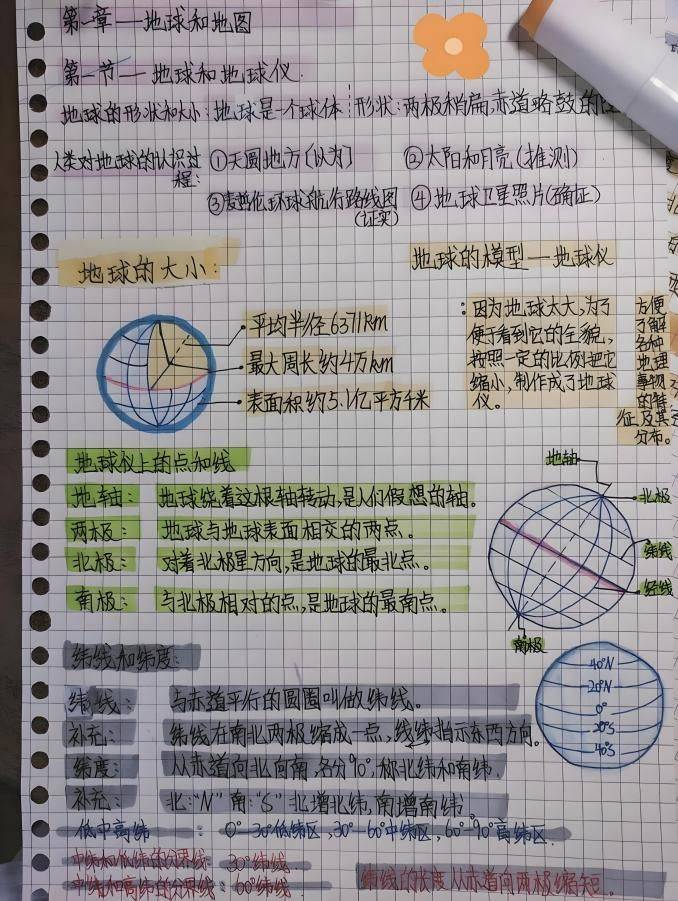 第一章——地球和地图
第一节——地球和地球仪.
地球的形状和大小:地球是一个球体 形状:两极稍扁,赤道略鼓的
人类对地球的认识过程: ①天圆地方(以为) ②太阳和月亮(推测)
③麦哲伦环球航行路线图(证实) ④地球卫星照片(确证)
地球的大小:
平均半径6371km
最大周长约4万km
表面积约5.1亿平方千米
地球的模型——地球仪
:因为地球太大,为了
便于看到它的全貌,
按照一定的比例把它
缩小,制作成了地球
仪。
方便
了解
各种
地理
事物
的特
征及其
分布。
地球仪上的点和线
地轴: 地球绕着这根轴转动,是人们假想的轴。
两极: 地球与地球表面相交的两点。
北极: 对着北极星方向,是地球的最北点。
南极: 与北极相对的点,是地球的最南点。
地轴
北极
纬线
经线
南极
纬线和纬度:
纬线: 与赤道平行的圆圈叫做纬线。
补充: 纬线在南北两极缩成一点,线纬指示东西方向。
纬度: 从赤道向北向南,各分90°,称北纬和南纬.
补充: 北:"N" 南:"S" 北增北纬,南增南纬。
低中高纬: 0°-30°低纬区,30°-60°中纬区,60°-90°高纬区.
中纬和低纬的分界线: 30°纬线.
中纬和高纬的分界线: 60°纬线.
纬线的长度从赤道向两极缩短.
40°N
20°N
0°
20°S
40°S